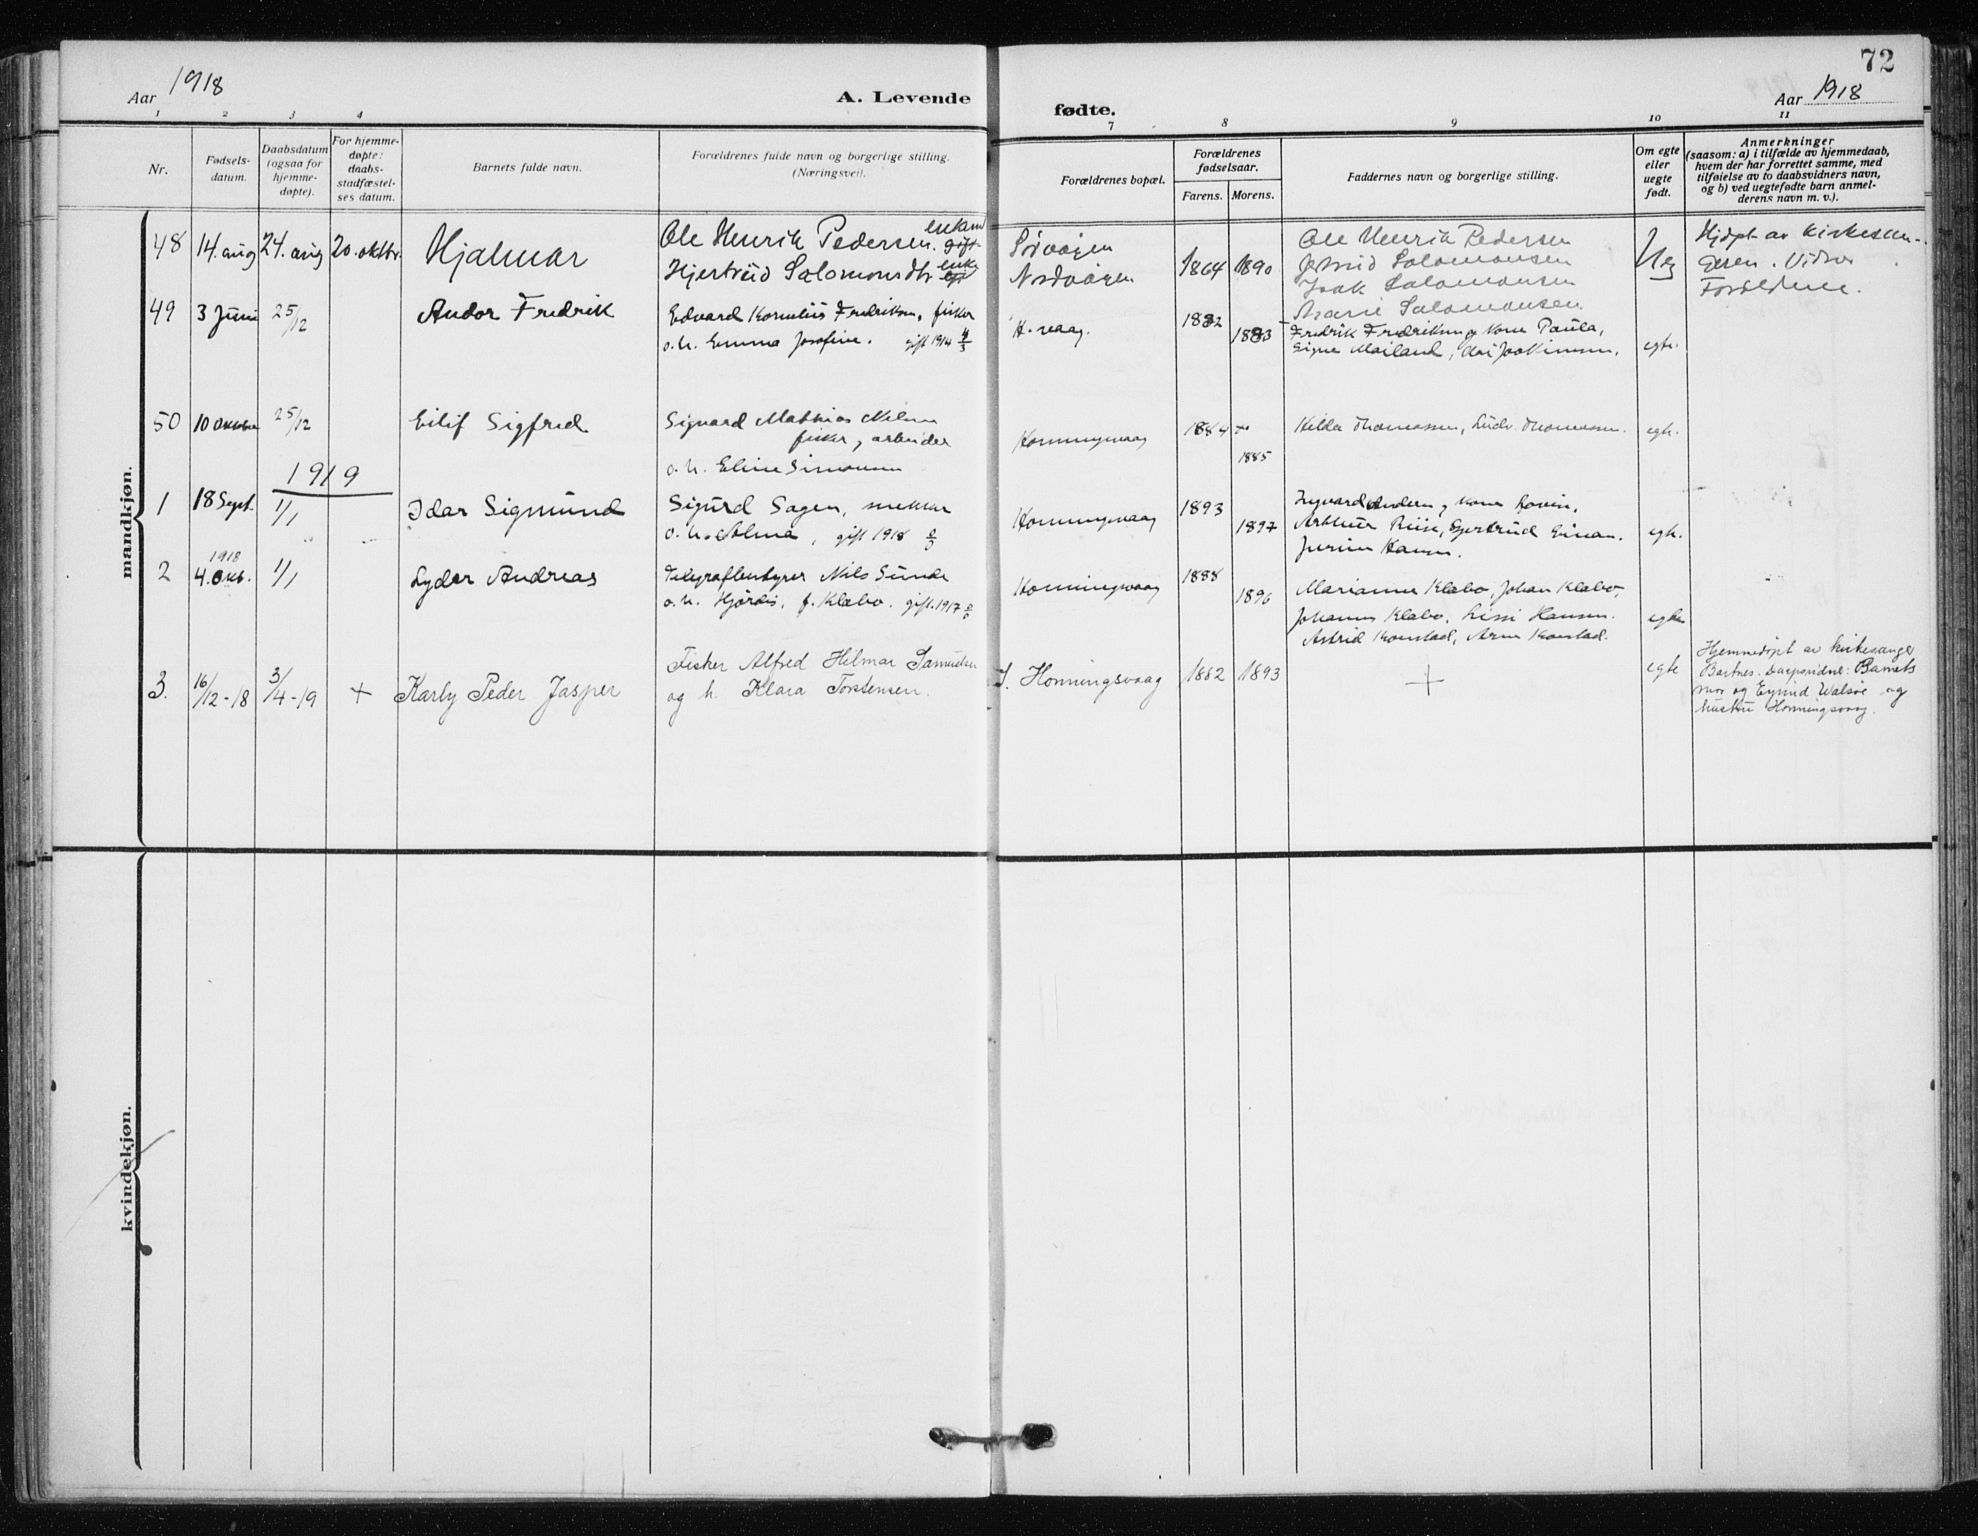 72
Aar 1918
A. Levende
fødte.
Aar 1918
1 2 3 4 7 8 9 10 11
Nr.
Fødsels-
datum.
Daabsdatum
(ogsaa for
hjemme-
døpte).
For hjemme-
døpte:
daabs-
stadfæstel-
ses datum.
Barnets fulde navn.
Forældrenes fulde navn og borgerlige stilling.
(Næringsvei).
Forældrenes bopæl.
Forældrenes
fødselsaar.
Farens. Morens.
Faddernes navn og borgerlige stilling.
Om egte
eller
uegte
født.
Anmerkninger
(saasom: a) i tilfælde av hjemmedaab,
hvem der har forrettet samme, med
tilføielse av to daabsvidners navn,
og b) ved uegtefødte barn anmel-
derens navn m. v.).
mandkjøn.
48 14. aug 24. aug 20. oktbr. Hjalmar
Ole Henrik Pedersen. enkem gift
Hjertrud Salomonsdtr enke
Sørvågen
Nordvågen
1864 1890
Ole Henrik Pedersen
Salomonsen
Isak Salomonsen
Marie Salomonsen
Ueg
Hjdpt. av kirkesan-
geren. Vidner
Forældrene.
49 3 Juni 25/12 Andor Fredrik
Edvard Kornelius Fredriksen, fisker
o. h. Emma Josefine. gift 1914 4/3
H. vaag.
1882 1883
Fredrik Fredriksen og kone Paula,
Signe Mailand, Joakimsen.
egte.
50 10 Oktober 25/12 Eilif Sigfred
Sigvard Mathias Nilsen
fisker, arbeider
o. h. Eline Simonsen
Honningsvaag
1884 1885
Hilda Thomassen, Ludv. Thomassen.
egte.
1919
1 18 Sept. 1/1 Idar Sigmund
Sigurd Sagen, snekker
o. h. Alma, gift 1918 2/3
Honningsvaag
1893 1897
Ingvard Andersen, kone Lovise,
Arthur Riise, Gjertrud Einan.
Hansen.
egte.
2 1918 4. Okt. 1/1 Lyder Andreas
Telegrafbestyrer Nils Sunde
o. h. Hjørdis, f. Klæbo. gift. 1917
Honningsvaag
1888 1896
Marianne Klæbo, Johan Klæbo,
Johannes Klæbo, Lissi Hansen.
Astrid Konstad, Arne Konstad.
egte
3. 16/12-18 3/4-19 + Karly Peder Jasper
Fisker Alfred Hilmar Samuelsen
og h. Klara Torstensen.
S. Honningsvaag
1882 1893
+
egte
Hjemmedøpt av kirkesanger
Bartnes. Daapsvidne: Barnets
mor og Eyvind Walsøe og
hustru Honningsvaag.
kvindekjøn.